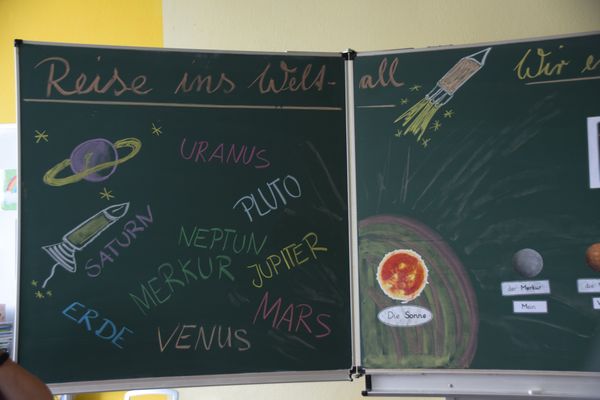 Reise ins Welt-
all
Wir e
URANUS
PLUTO
SATURN
NEPTUN
JUPITER
MERKUR
ERDE
VENUS
MARS
Die Sonne
der Merkur
Mein